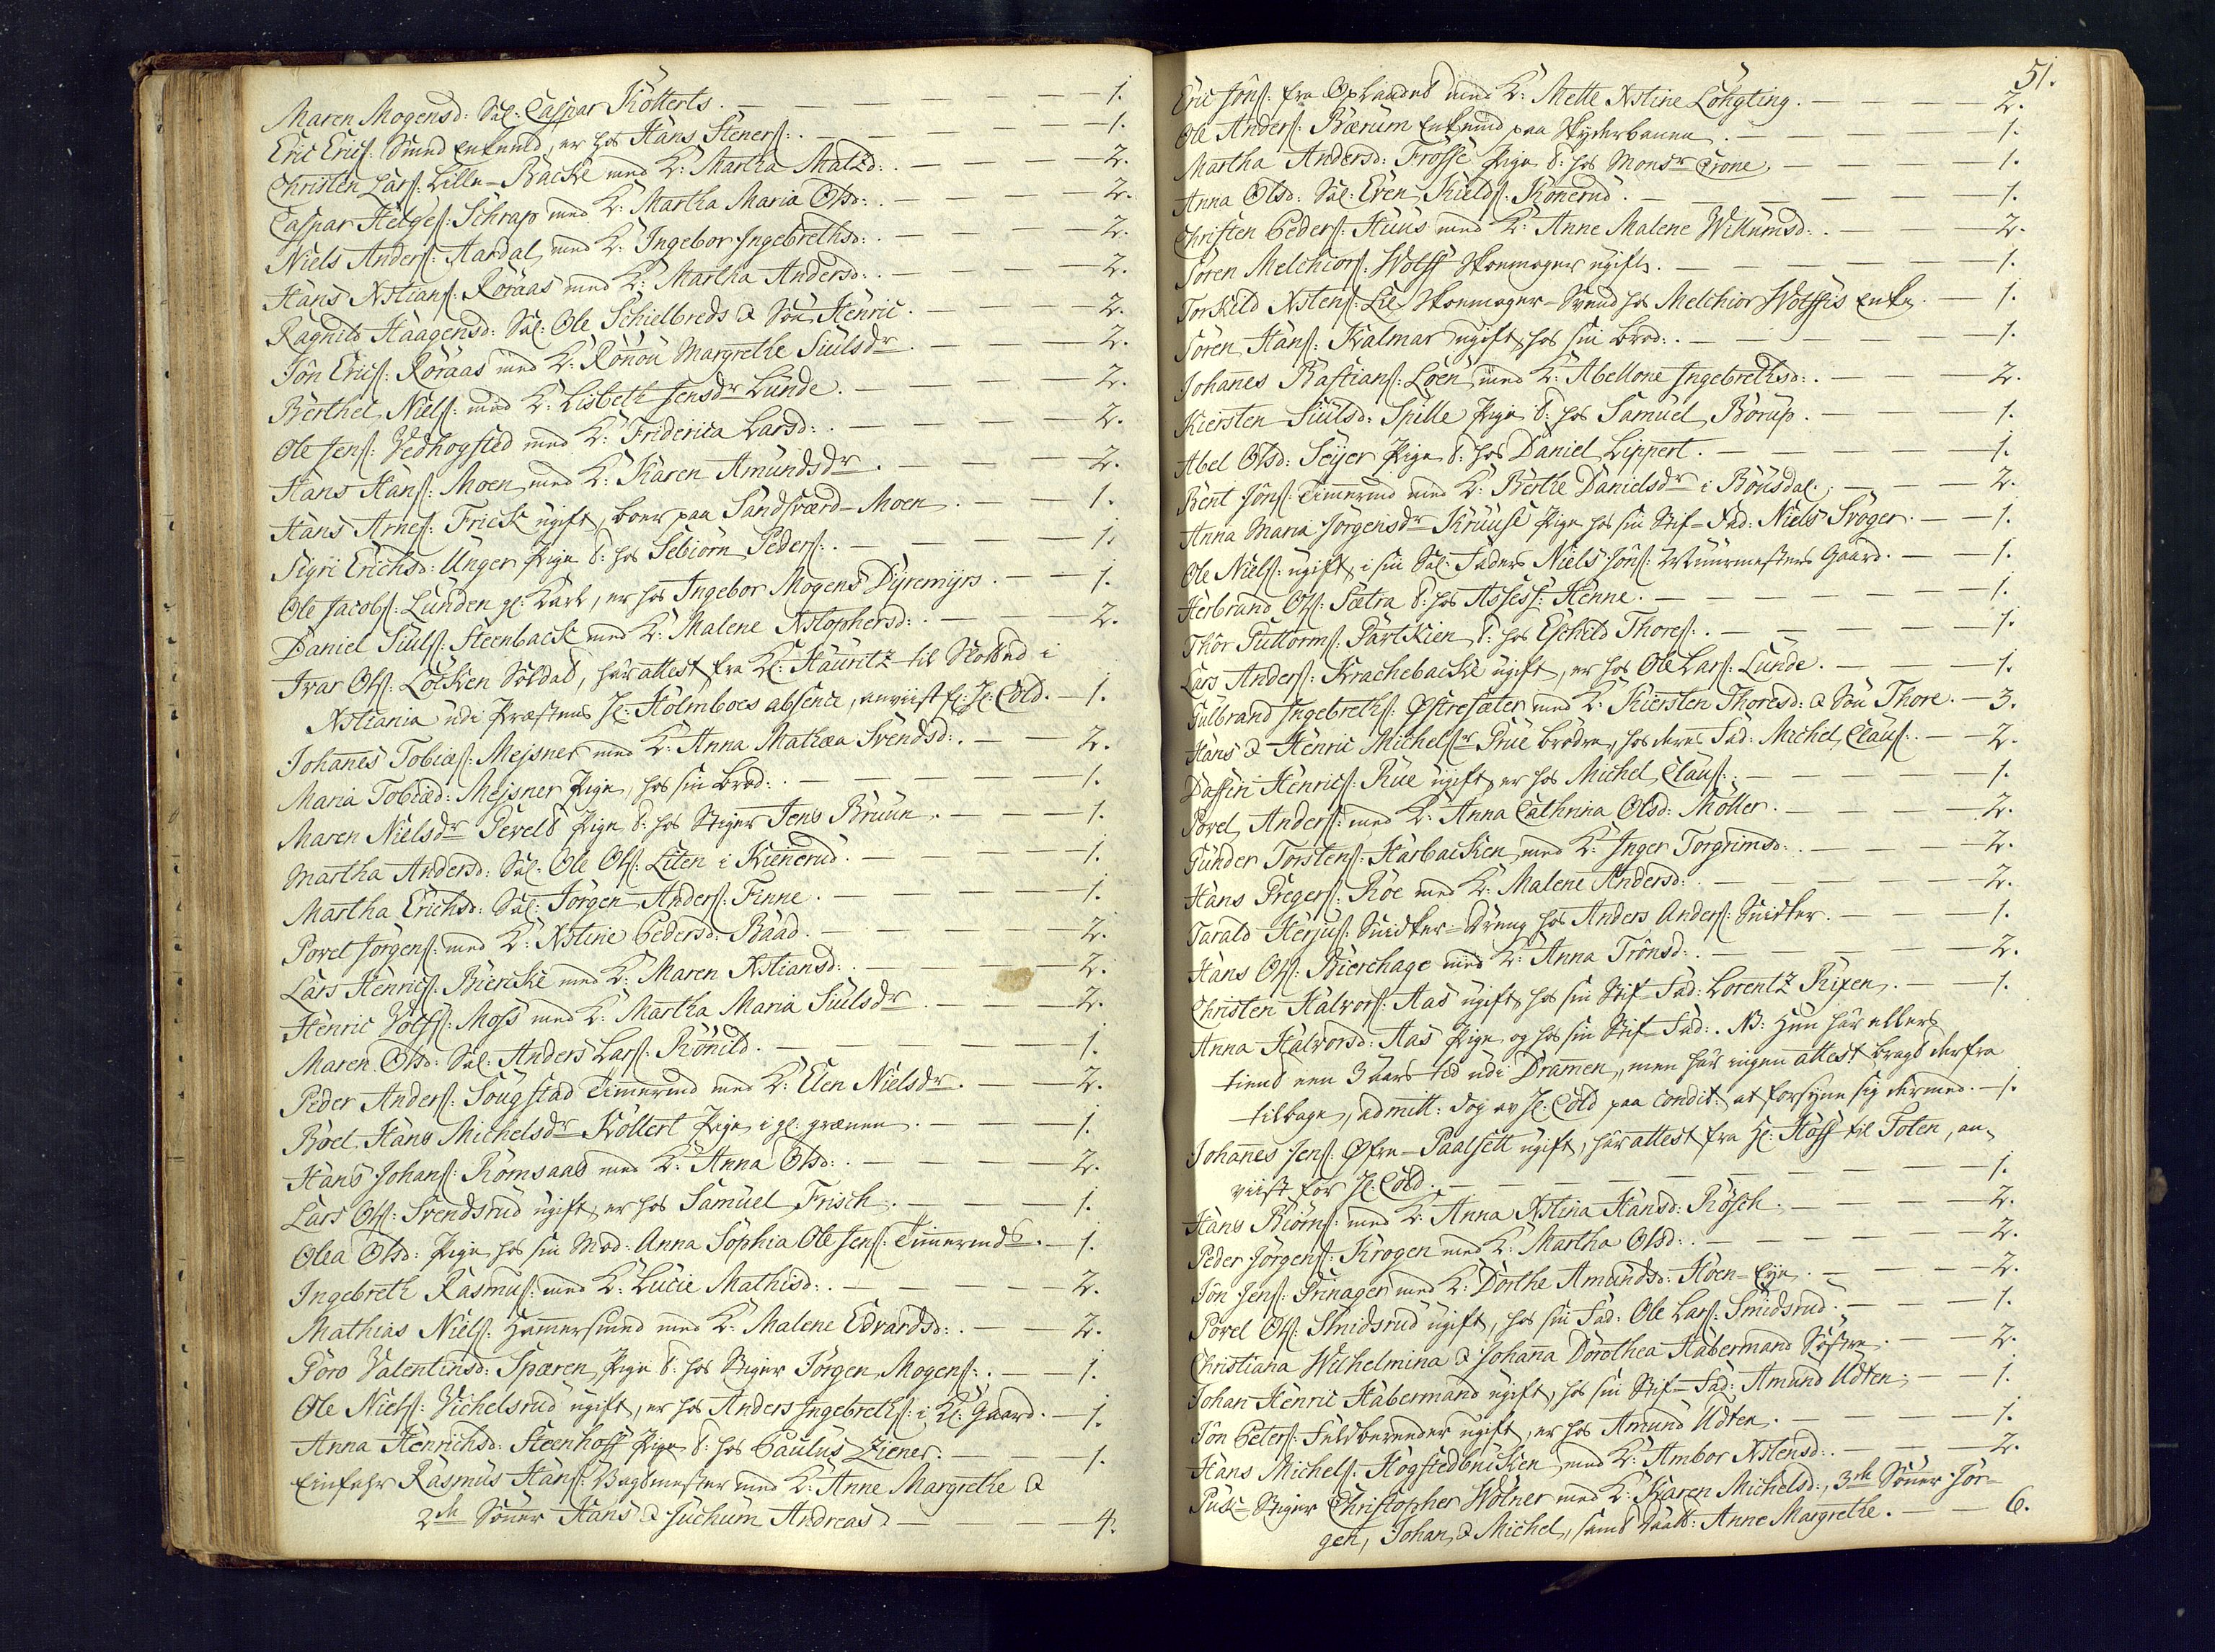 Maren Mogensd: Sal: Caspar Kollerts. — 1.
Eric Erics: Smed enkemd, er hos Hans Steners:. — 1.
Christen Lars: Lille-Backe med K: Martha Matzd:. — 2.
Caspar Helges: Schrap med K: Martha Maria Olsd:. — 2.
Niels Anders: Aardal med K: Ingebor Ingebrethsd:. — 2.
Hans Xstians: Röraas med K: Martha Andersd:. — 2.
Ragnild Haagensd: Sal: Ole Schielbreds & Sön Henric. — 2.
Jön Erics: Röraas med K: Rönnou Margrethe Siulsdr — 2.
Berthel Niels: med K: Lisbeth Jensdr Lunde. — 2.
Ole Jens: Vedhogsted med K: Friderica Larsd:. — 2.
Hans Hans: Moen med K: Karen Amundsdr. — 2.
Hans Arnes: Frick ugift, boer paa Sandsværd-Moen. — 1.
Sigri Erichsd: Unger Pige t: hos Sebiörn Peders:. — 1.
Ole Jacobs: Lunden gl: Karl, er hos Ingebor Mogens Dyremyrs. — 1.
Daniel Siuls: Steenback med K: Malene Xstophersd:. — 2.
Ivar Ols: Löcken Soldat, har attest fra Hl: Hauritz til
Xstiania udi Præstens Hl: Holmboes absence, anviist f: Hl: Cold. — 1.
Johannes Tobias: Mejsner med K: Anna Mathæa Svendsd:. — 2.
Maria Tobiæd: Mejsner Pige, hos sin Brod:. — 1.
Maren Nielsdr Pevels Pige t: hos Stiger Jens Bruun. — 1.
Martha Andersd: Sal: Ole Ols: Liten i Kienerud. — 1.
Martha Erichsd: Sal: Jörgen Anders: Finne. — 1.
Povel Jörgens: med K: Xstine Pedersd: Baad. — 2.
Lars Henrics: Biercke med K: Maren Xstiansd:. — 2.
Henric Volfs: Moss med K: Martha Maria Siulsdr — 2.
Maren Olsd: Sal: Anders Lars: Rönnild. — 1.
Peder Anders: Sougstad Timmermd med K: Elen Nielsdr. — 2.
Boel Hans Michelsdr Kollert Pige i gl: grænen. — 1.
Hans Johans: Romsaas med K: Anna Olsd:. — 2.
Lars Ols: Svendsrud ugift, er hos Samuel Frisch. — 1.
Olea Olsd: Pige hos sin Mod: Anna Sophia Ole Jens: Timmermds. — 1.
Ingebreth Rasmus: med K: Lucie Mathisd:. — 2.
Mathias Niels: Hammersmed med K: Malene Edvardsd:. — 2.
Poro Valentinsd: Spæren Pige t: hos Stiger Jörgen Mogens:. — 1.
Ole Niels: Vichelsrud ugift, er hos Anders Ingebreths: i Hl: Gaard. — 1.
Anna Henrichsd: Steenhoff Pige t: hos Paulus Ziener. — 1.
Einfahr Rasmus Hans: Bogdmester med K: Anne Margrethe &
2de Sönner Hans & Juchum Andreas. — 4.
51.
Eric Jöns: fra Oplandet med K: Mette Xstine Löhgting. — 2.
Ole Anders: Bærum enkemd paa Skyderbanen. — 1.
Martha Andersd: Frosse Pige t: hos Monsr Crone. — 1.
Anna Olsd: Sal: Even Kields: Konerud. — 1.
Christen Peders: Huus med K: Anne Malene Willumsd:. — 2.
Sören Melchiors: Wolff Skomager ugift. — 1.
Torkild Xstens: Lie Skomager-Svend hos Melchior Wolffis enke. — 1.
Sören Hans: Kalmar ugift, hos sin Brod:. — 1.
Johannes Bastians: Loen med K: Abellone Ingebrethsd:. — 2.
Kiersten Siulsd: Spille Pige t: hos Samuel Borup. — 1.
Abel Olsd: Sejer Pige t: hos Daniel Lippert. — 1.
Bent Jöns: Timmermd med K: Berthe Danielsdr i Bousdal. — 2.
Anna Maria Jörgensdr Kruuse Pige hos sin Stif-Fad: Niels Svöger. — 1.
Ole Niels: ugift, i sin Sal: Faders Niels Jöns: Muurmesters Gaard. — 1.
Herbrand Ols: Sætra t: hos Assess: Henne. — 1.
Thor Guttorms: Partkien t: hos Eschild Thores:. — 1.
Lars Anders: Krachebacke ugift, er hos Ole Lars: Lunde. — 1.
Gulbrand Ingebreths: Østresæter med K: Kiersten Thoresd: & Sön Thore. — 3.
Hans & Henric Michelsr Prüe brödre, hos deres Fad: Michel Claus:. — 2.
Daffin Henrics: Rue ugift, er hos Michel Claus:. — 1.
Povel Anders: med K: Anna Cathrina Olsd: Möller. — 2.
Gunder Torstens: Harbacken med K: Inger Torgrimsd:. — 2.
Hans Gregers: Roe med K: Malene Andersd:. — 2.
Tarald Herjus: Snidker-Dreng hos Anders Anders: Snidker. — 1.
Hans Ols: Bierchage med K: Anna Trönsd:. — 2.
Christen Halvors: Aas ugift, hos sin Stif-Fad: Lorentz Rixen. — 1.
Anna Halvorsd: Aas Pige og hos sin Stif-Fad:. NB: Hun har ellers
tient een 3 aars tid udi Drammen, men har ingen attest bragt derfra
tilbage, admitt: dog av Hl: Cold paa condit: at forsyne sig dermed. — 1.
Johannes Jens: Øfre-Paalsett ugift, har attest fra Hl: Hoff til Toten, an-
viist for Hl: Cold. — 1.
Hans Biörns: med K: Anna Xstina Hansd: Rösch. — 2.
Peder Jörgens: Krogen med K: Martha Olsd:. — 2.
Jön Jens: Prinager med K: Dorthe Amundsd: Hoen-Eye. — 2.
Povel Ols: Smidsrud ugift, hos sin Fad: Ole Lars: Smidsrud. — 1.
Christiana Wilhelmina & Johanna Dorothea Habermand Söstre. — 2.
Johan Henric Habermand ugift, hos sin Stif-Fad: Amund Udten. — 1.
Jön Peters: Feldbereeder ugift, er hos Amund Udten. — 1.
Hans Michels: Högstedbricken med K: Ambor Xstensd:. — 2.
Puk-Stiger Christopher Wölner med K: Karen Michelsd:, 3de Sönner Jör-
gen, Johan & Michel, samt Daatt: Anne Margrethe. — 6.